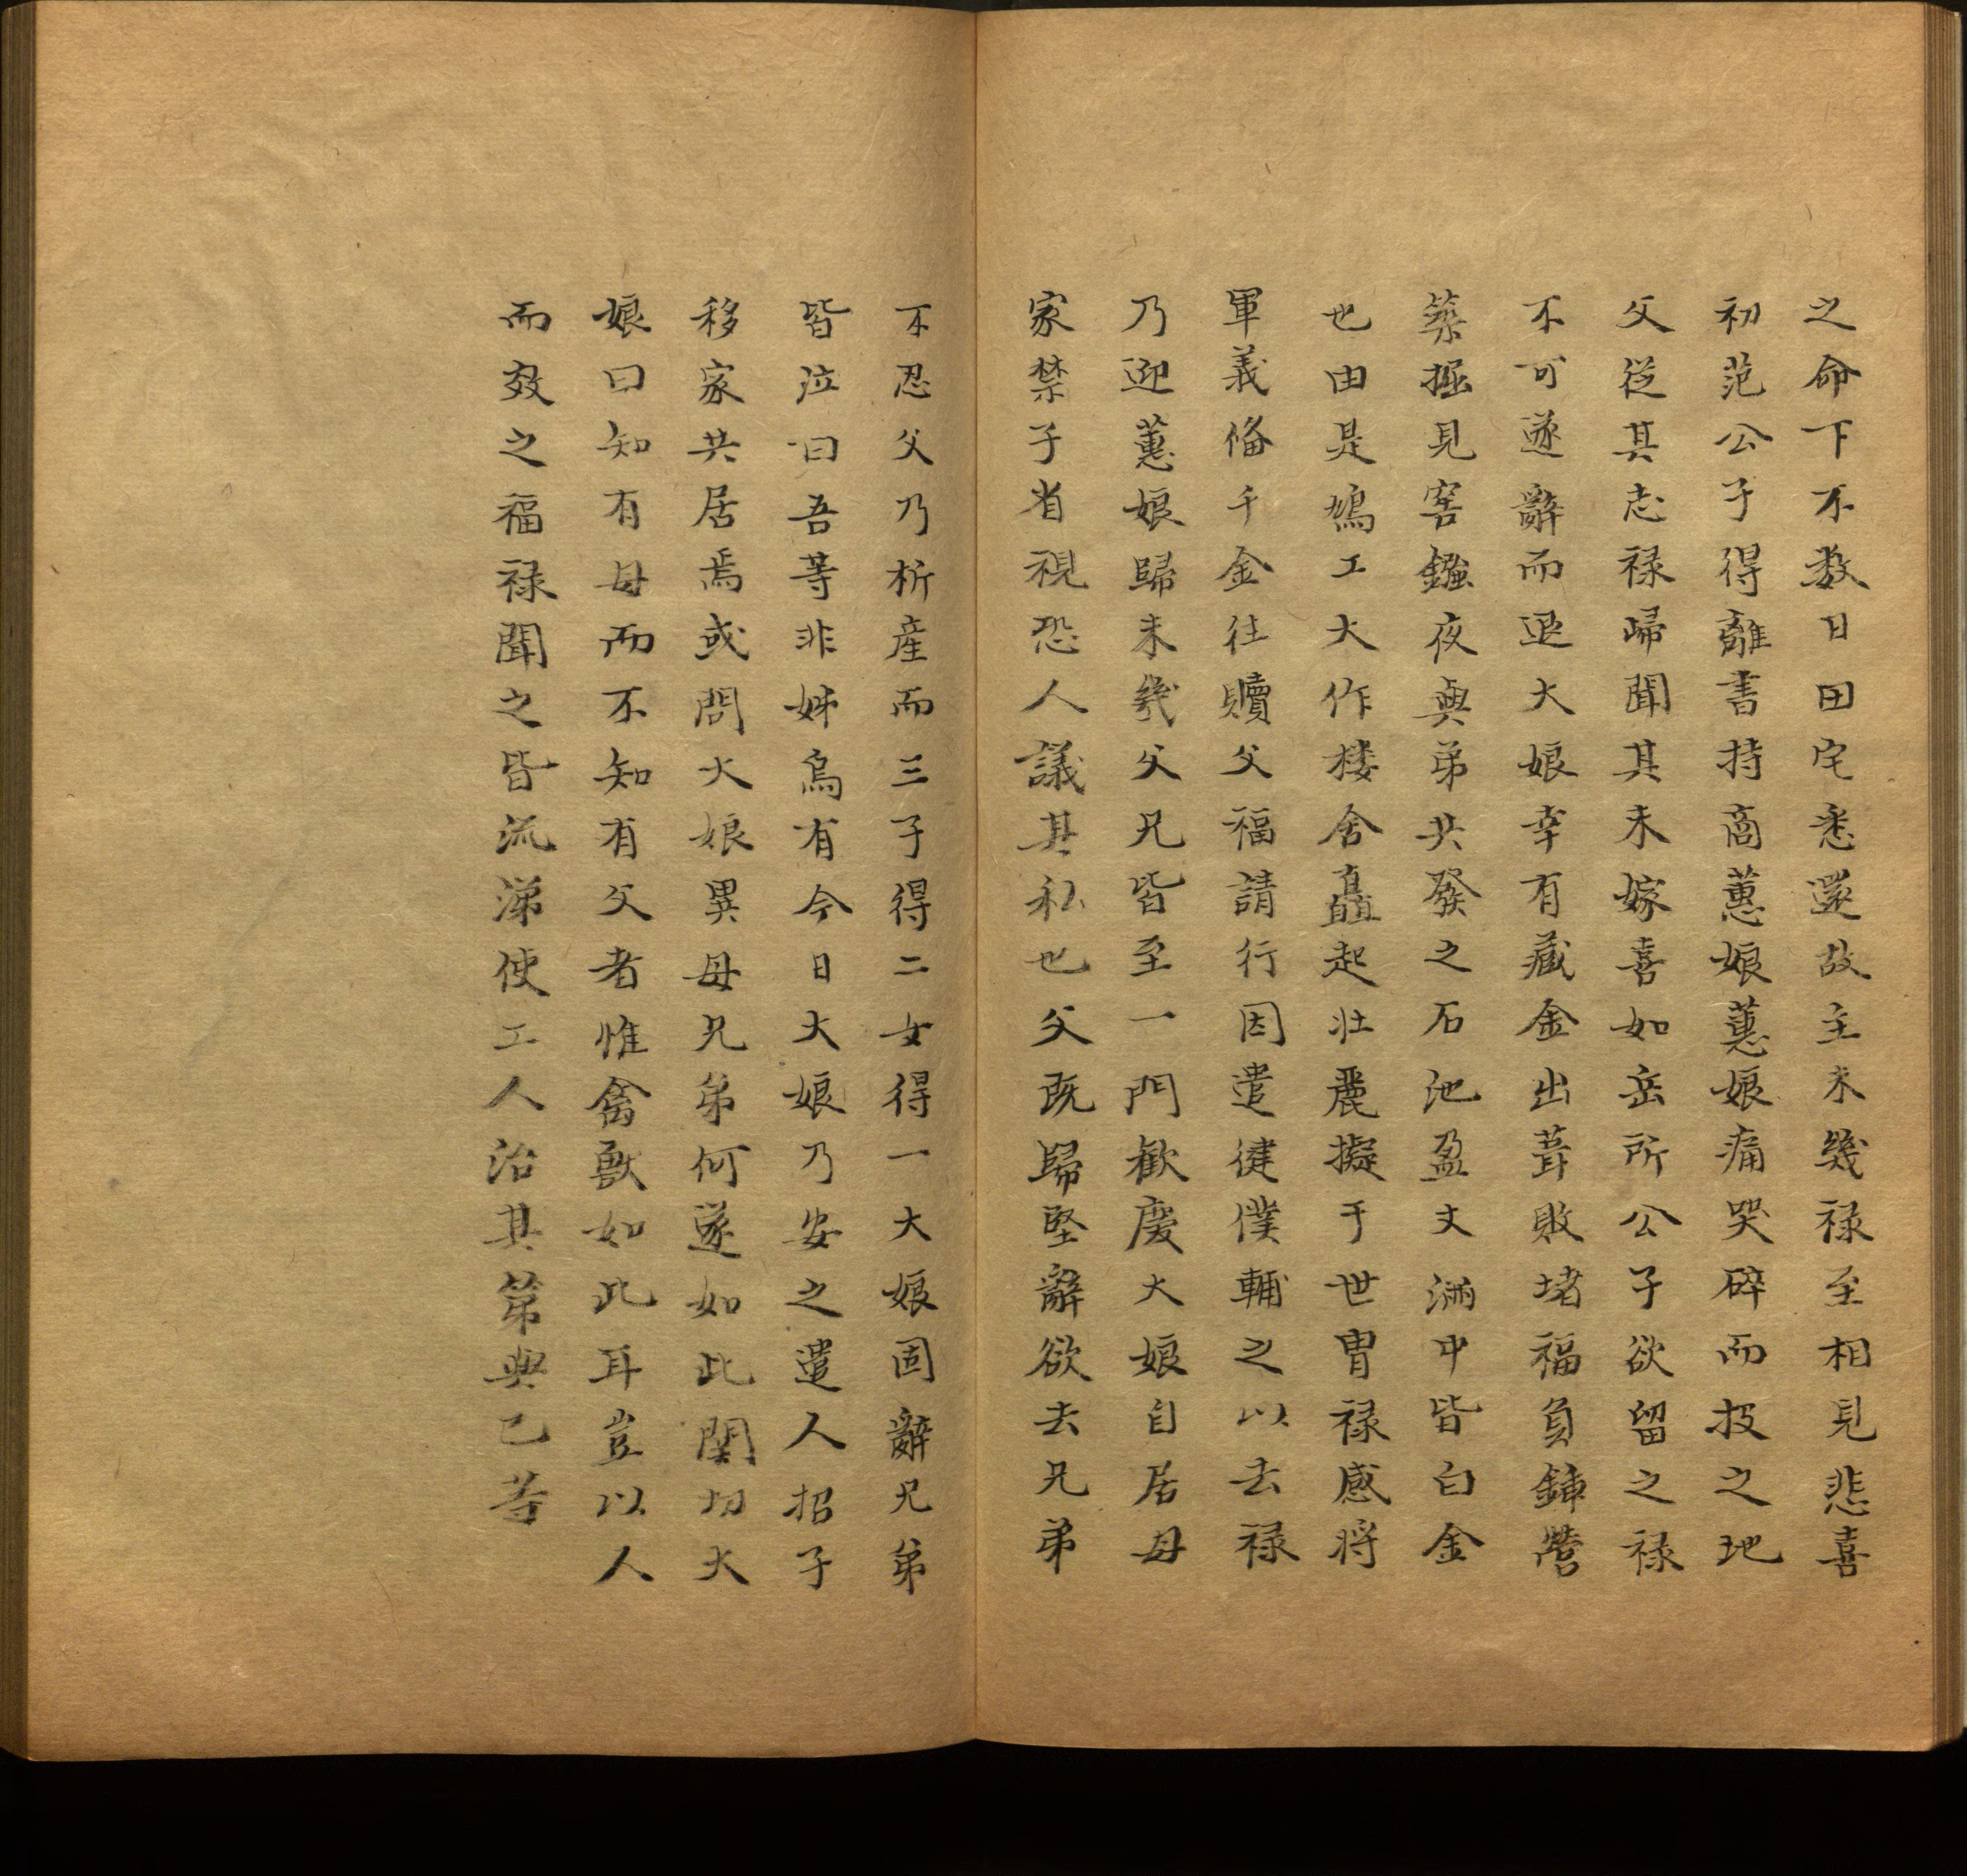 之命下不数日田宅悉還故主未幾禄至相見悲喜
初范公子得離書持商蕙娘蕙娘痛哭碎而投之地
父從其志禄歸聞其未嫁喜如岳所公子欲留之禄
不可遂辭而退大娘幸有藏金出葺敗堵福負鍤營
築掘見窖鏹夜與弟共發之石池盈丈滿中皆白金
也由是鳩工大作楼舍矗起壮麗擬于世冑禄感将
軍義俻千金往贖父福請行因遣健僕輔之以去禄
乃迎蕙娘歸未幾父兄皆至一門歓慶大娘自居母
家禁子省視恐人議其私也父既歸堅辭欲去兄弟
不忍父乃析産而三子得二女得一大娘固辭兄弟
皆泣曰吾等非姊烏有今日大娘乃安之遣人招子
移家共居焉或問大娘異母兄弟何遂如此関切大
娘曰知有母而不知有父者惟禽獸如此耳豈以人
而效之福禄聞之皆流涕使工人治其第與己等